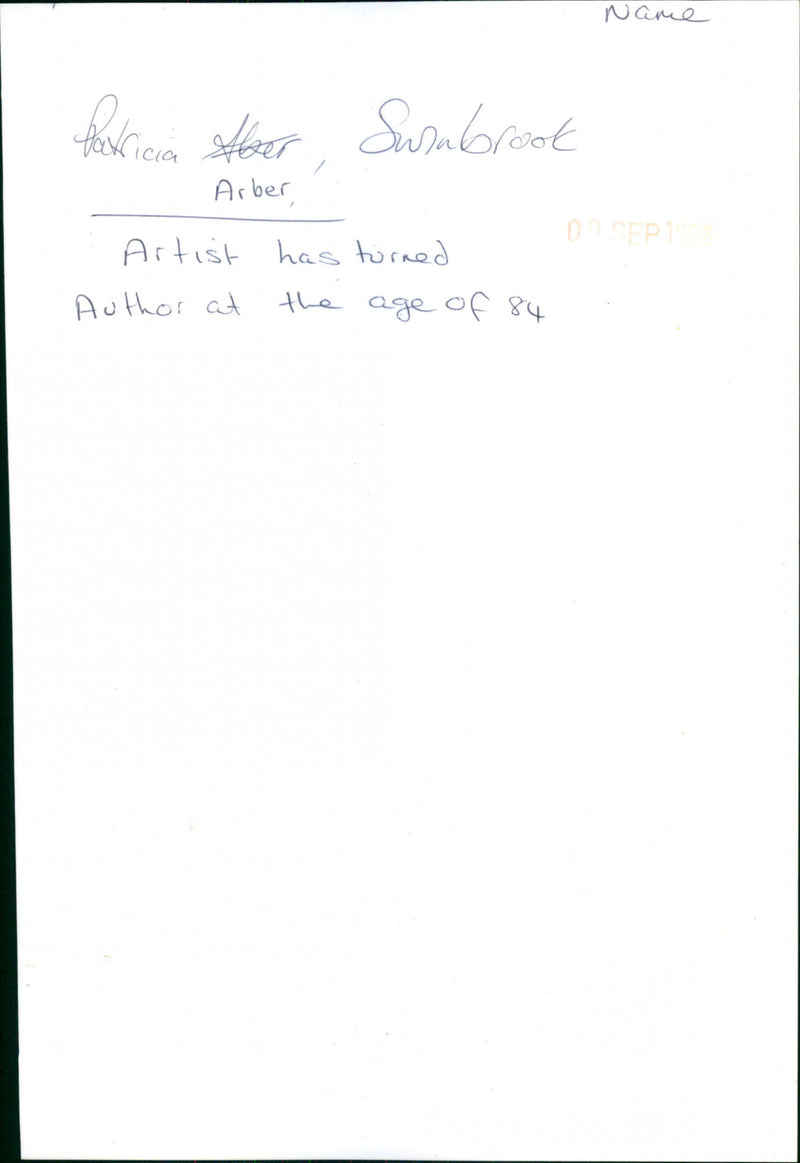 Name
Patricia Aber, Swinbrook
Arber,
09 SEP 1998
Artist has turned
Author at the age of 84